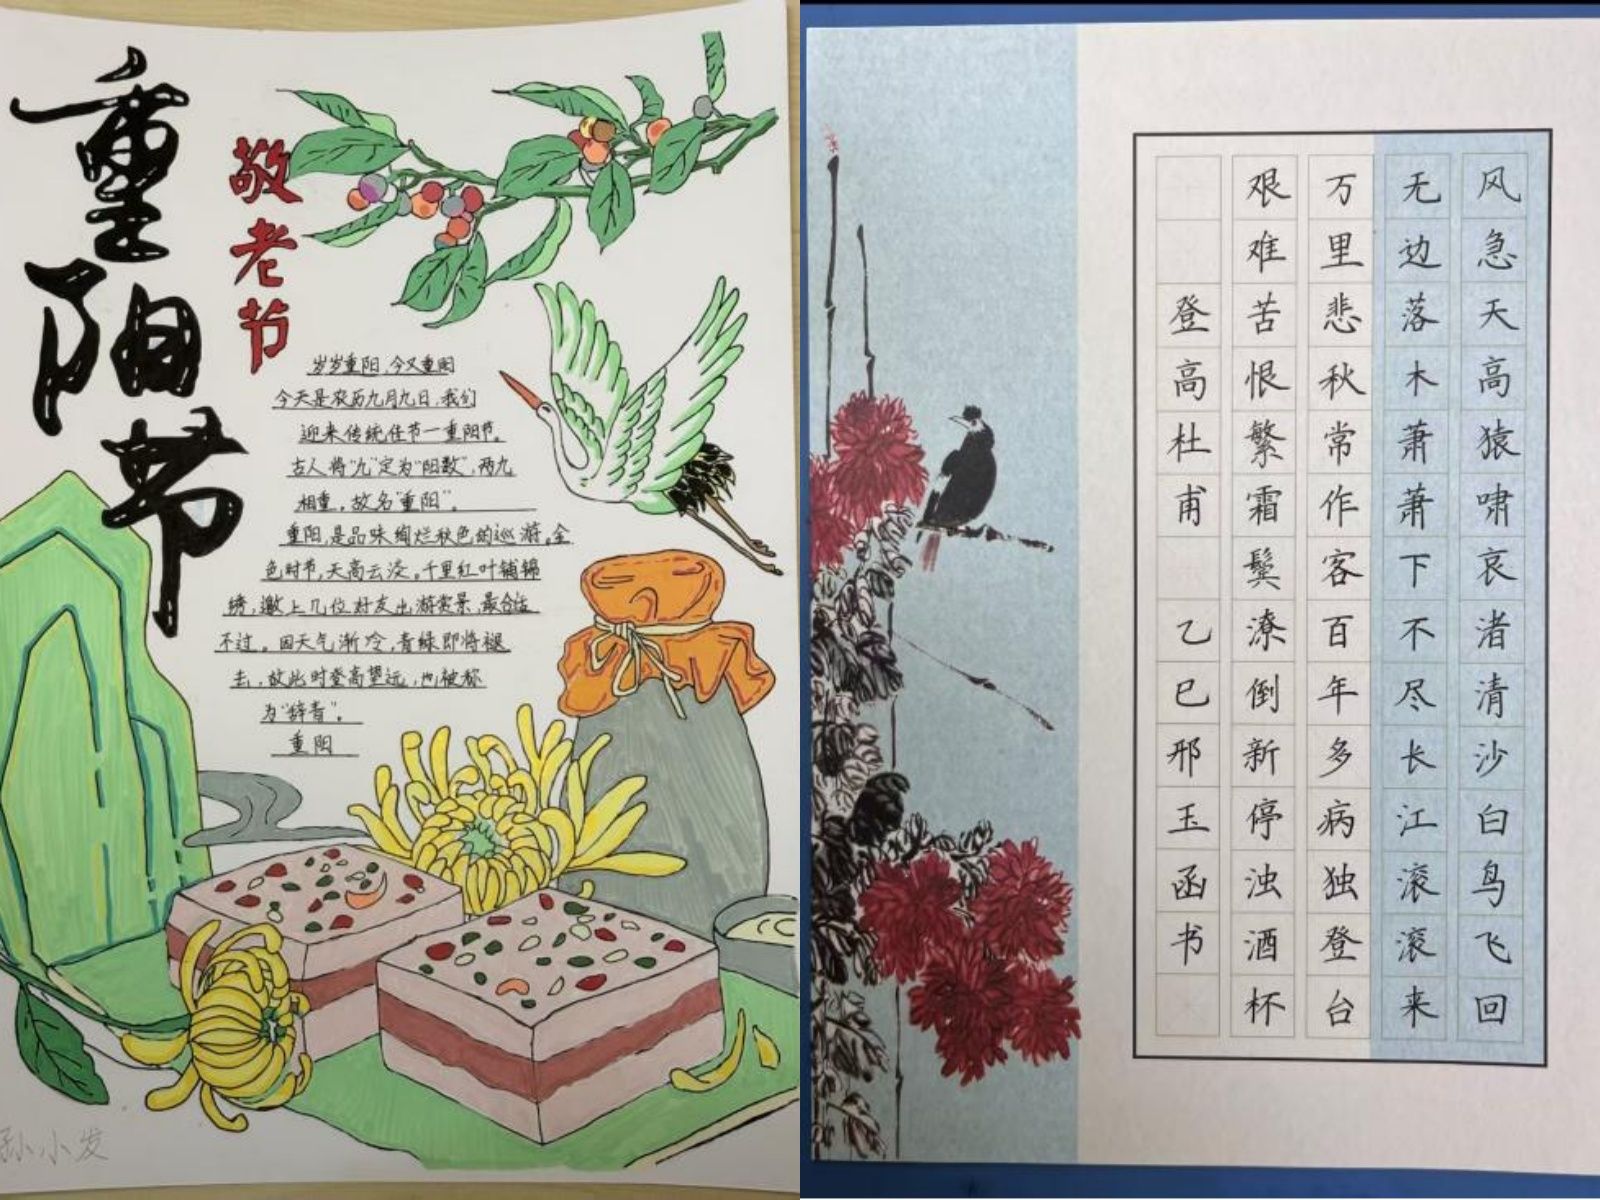 重阳节
敬老节
岁岁重阳,今又重阳
今天是农历九月九日,我们
迎来传统佳节一重阳节。
古人将"九"定为"阳数",两九
相重,故名"重阳"。
重阳,是品味绚烂秋色的巡游,金
色时节,天高云淡。千里红叶铺锦
绣,邀上几位好友出游赏景,最合适
不过。因天气渐冷,青绿即将褪
去,故此时登高望远,也被称
为"辞青"。
重阳
孙小发
风急天高猿啸哀渚清沙白鸟飞回
无边落木萧萧下不尽长江滚滚来
万里悲秋常作客百年多病独登台
艰难苦恨繁霜鬓潦倒新停浊酒杯
登高杜甫 乙巳邢玉函书